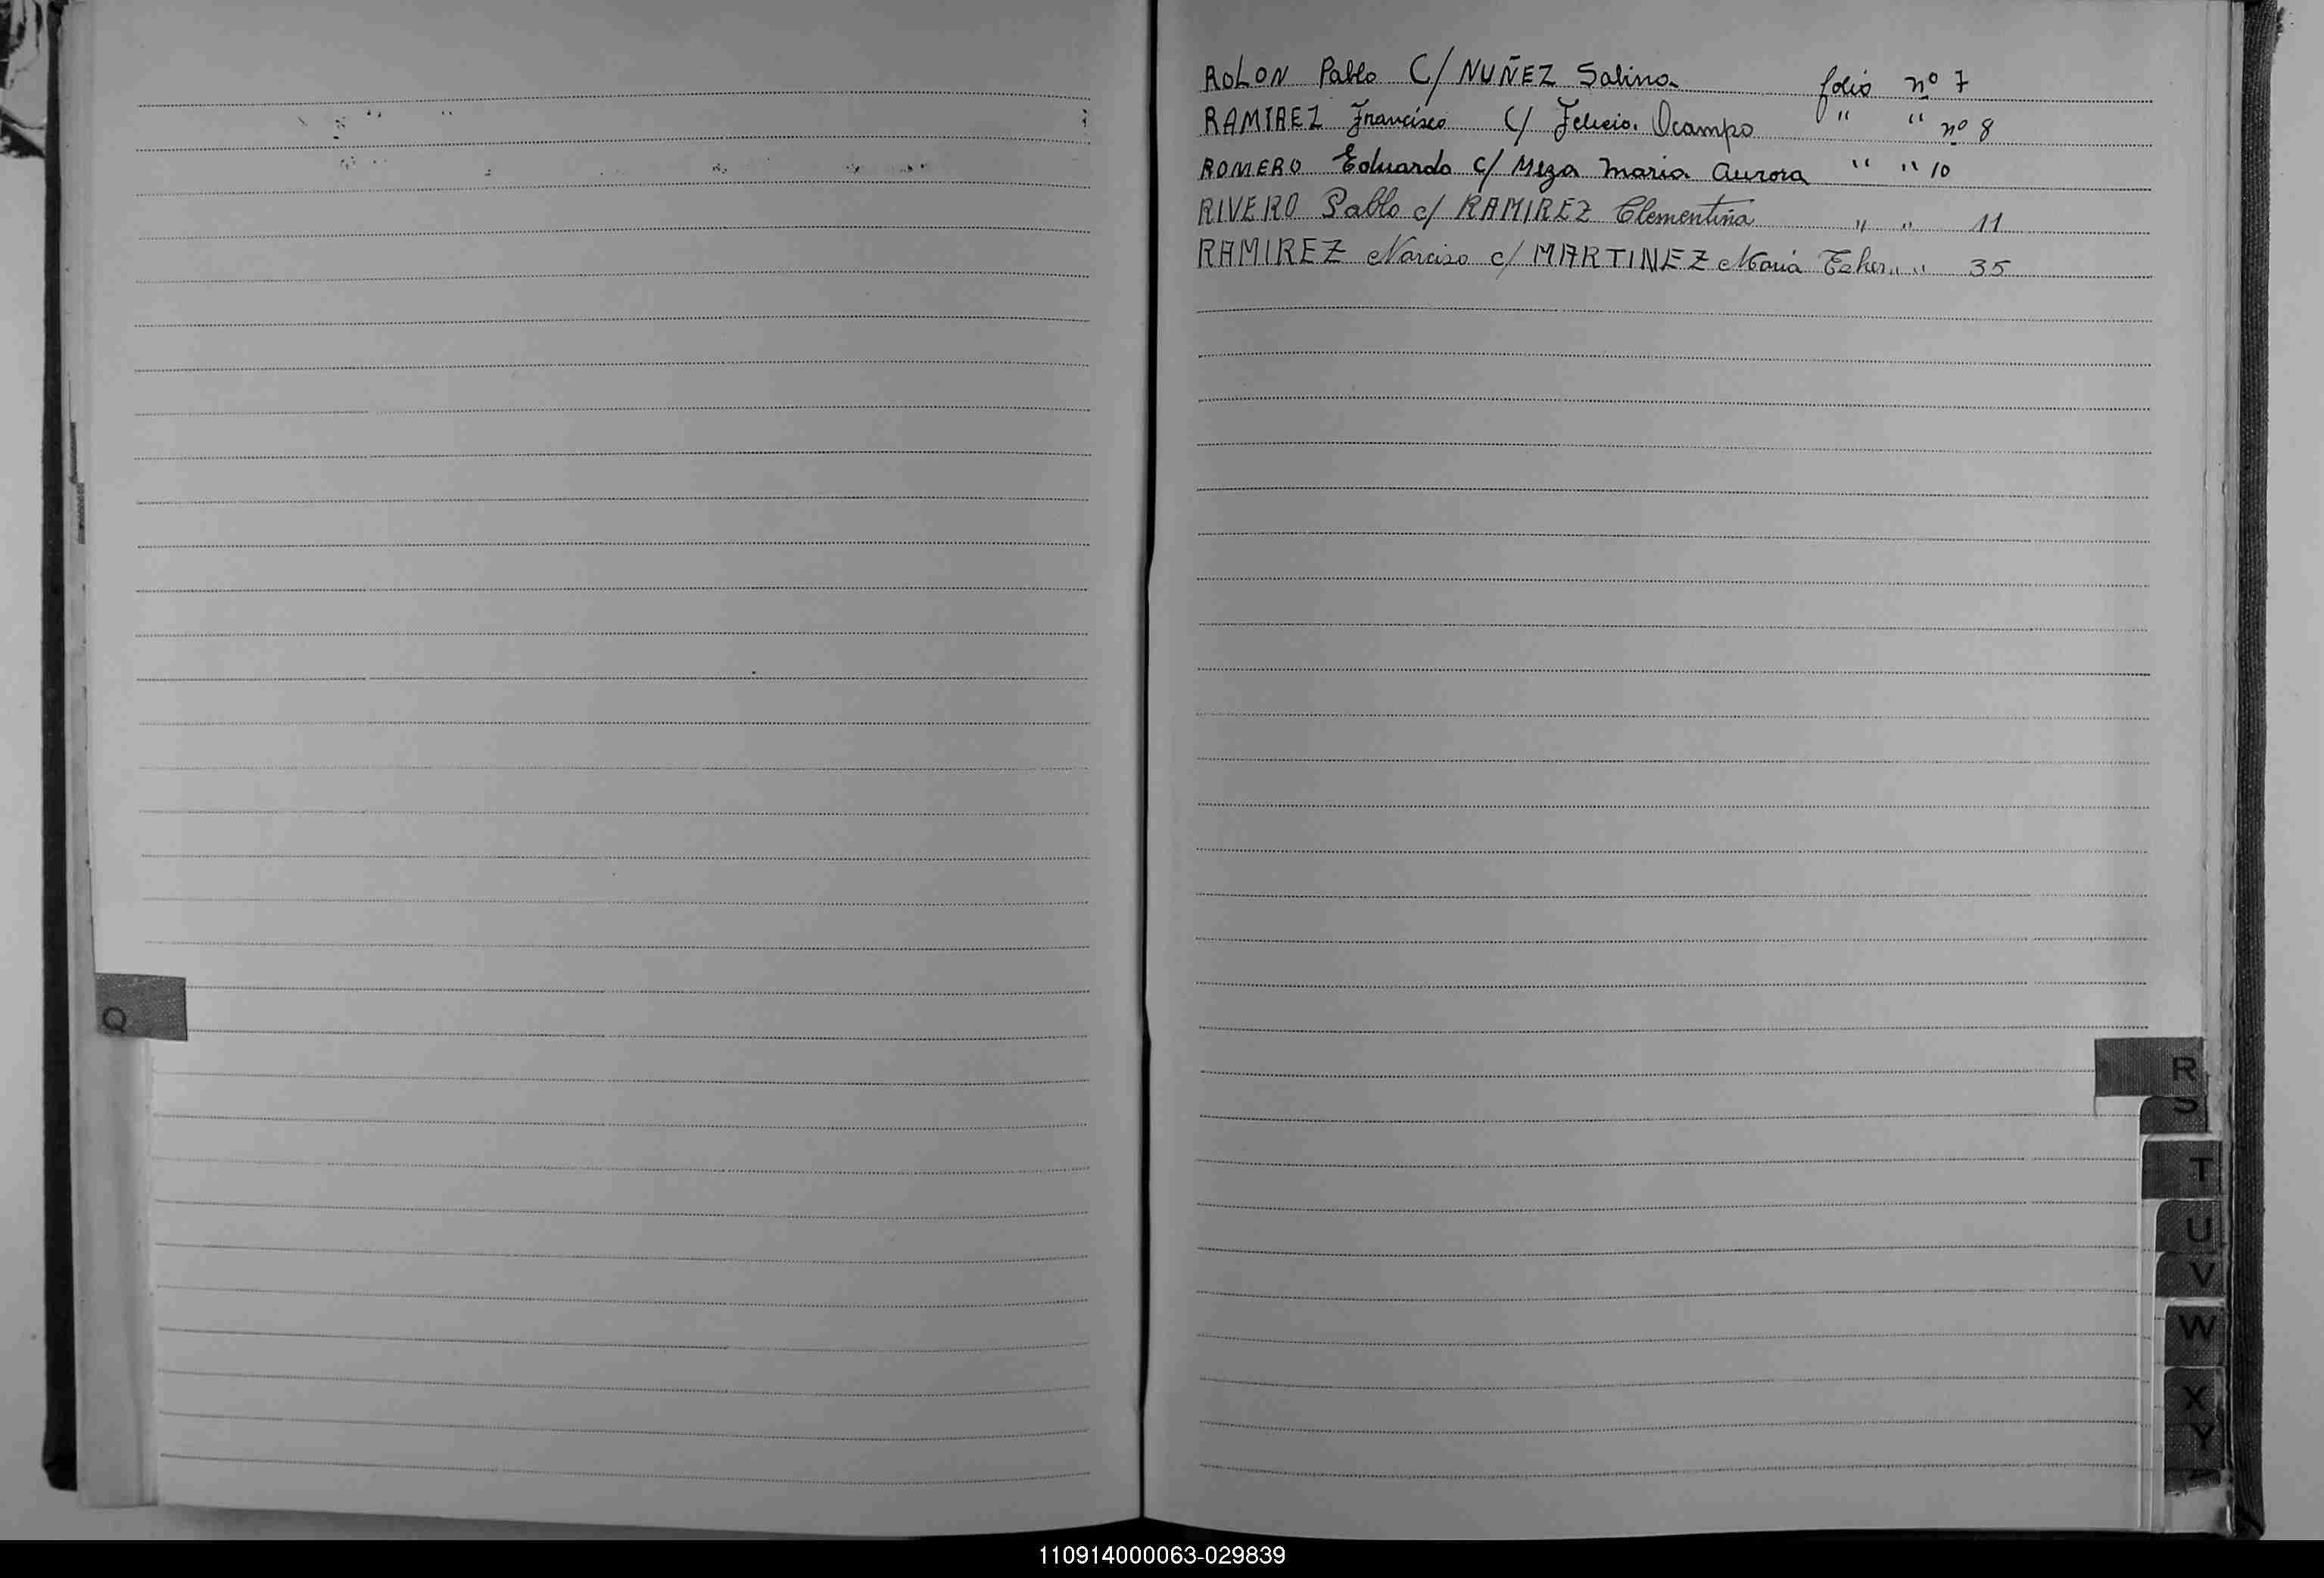 ROLON Pablo C/ NUÑEZ Sabina folio nº 7
RAMIREZ Francisco C/ Felicia. Ocampo " " nº 8
ROMERO Eduardo C/ Meza Maria Aurora " " 10
RIVERO Pablo c/ RAMIREZ Clementina " " 11
RAMIREZ Narciso c/ MARTINEZ María Esher " " 35
Q
R
S
T
U
V
W
X
Y
110914000063-029839